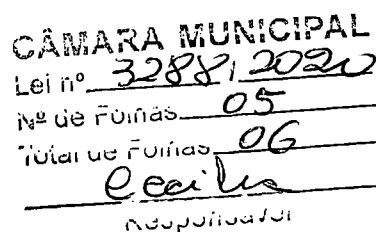 CÂMARA MUNICIPAL
Lei nº 3288/2020
Nº de Folhas 05
Total de Folhas 06
Cecilia
Responsável